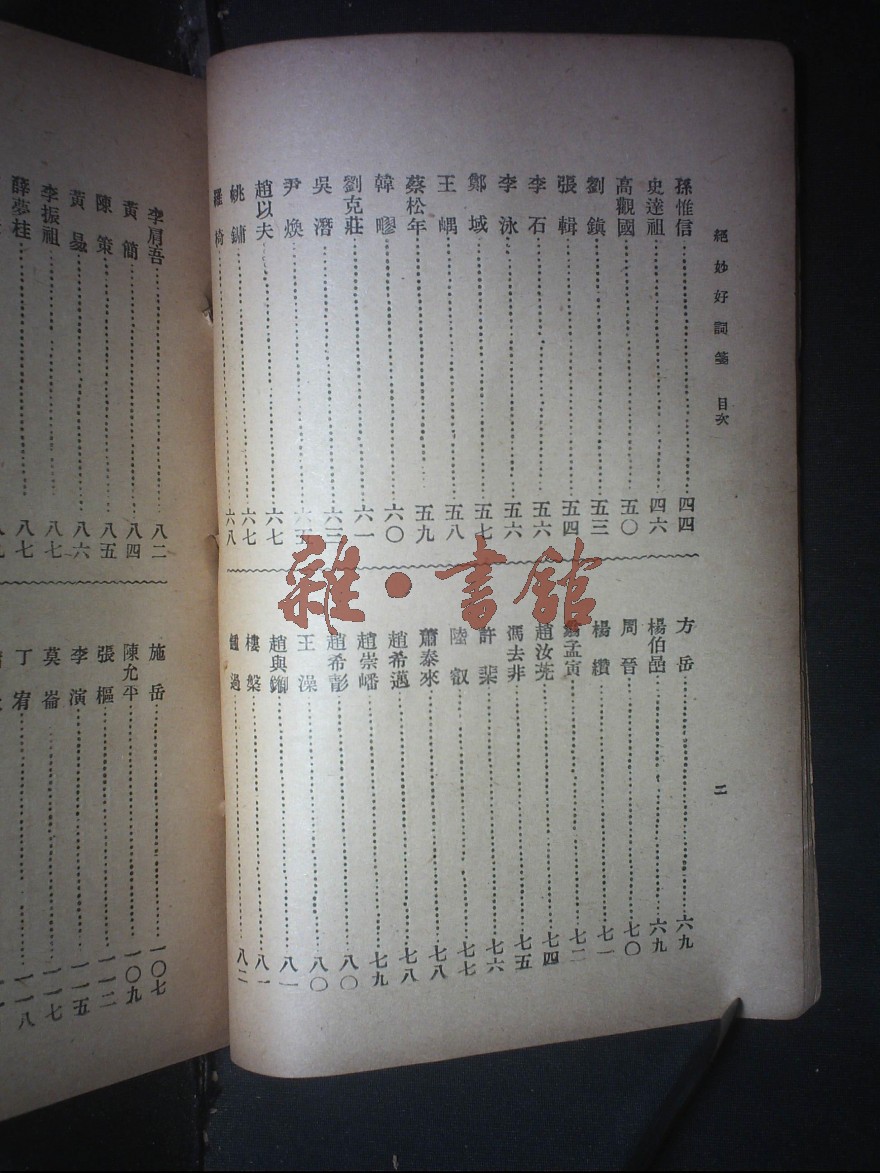 絕妙好詞箋　目次
二
孫惟信 四四
史達祖 四六
高觀國 五〇
劉鎮 五三
張輯 五四
李石 五六
李泳 五六
鄭域 五七
王嵎 五八
蔡松年 五九
韓疁 六〇
劉克莊 六一
吳潛 六三
尹煥 六五
趙以夫 六七
姚鏞 六七
羅椅 六八
方岳 六九
楊伯嵒 六九
周晉 七〇
楊纘 七一
翁孟寅 七二
趙汝茪 七四
馮去非 七五
許棐 七六
陸叡 七七
蕭泰來 七八
趙希邁 七八
趙崇嶓 七九
趙希彰 八〇
王澡 八〇
趙與鉚 八一
樓槃 八一
鍾過 八二
李肩吾 八二
黃簡 八四
陳策 八五
黃昜 八六
李振祖 八七
薛夢桂 八七
施岳 一〇七
陳允平 一〇九
張樞 一一二
李演 一一五
莫崙 一一七
丁宥 一一八
雜·書館